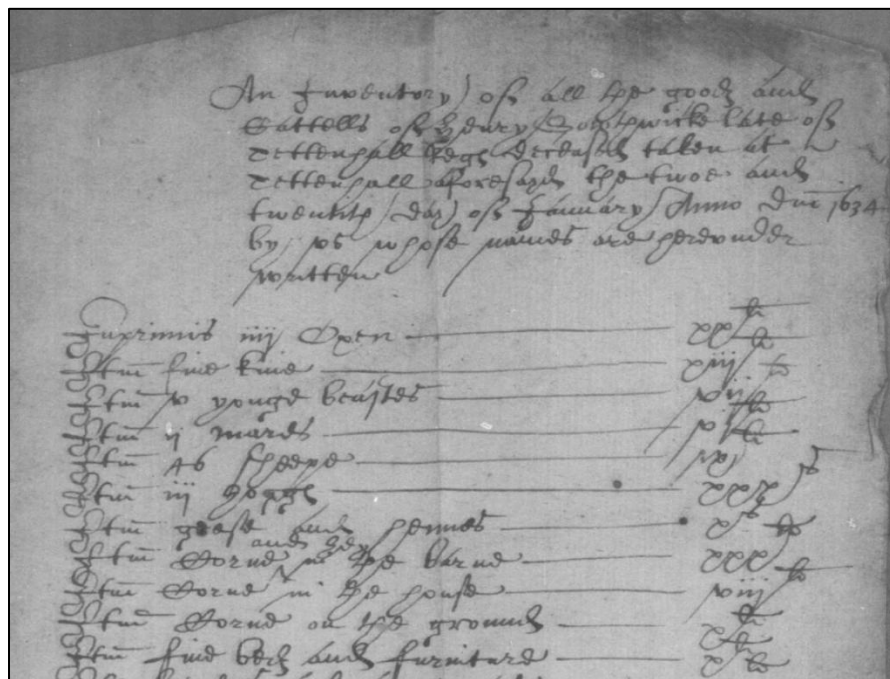 An Inventory of all the goods and
Cattells of Henry Southwicke late of
Tettenhall Regis deceased taken at
Tettenhall aforesayd the twoe and
twentith day of January Anno Dm̄ 1634
by us whose names are herevnder
written
Inprimis iiij Oxen xx li
Itm̄ five kine xiij li
Itm̄ v yonge beastes vij li
Itm̄ ij mares vj li
Itm̄ 46 sheepe
Itm̄ iij hoggs xxx s
Itm̄ geese and hennes x s
and hey
Itm̄ Corne in the barne xxx li
Itm̄ Corne in the house viij li
Itm̄ Corne on the ground x li
Itm̄ five beds and furniture x li